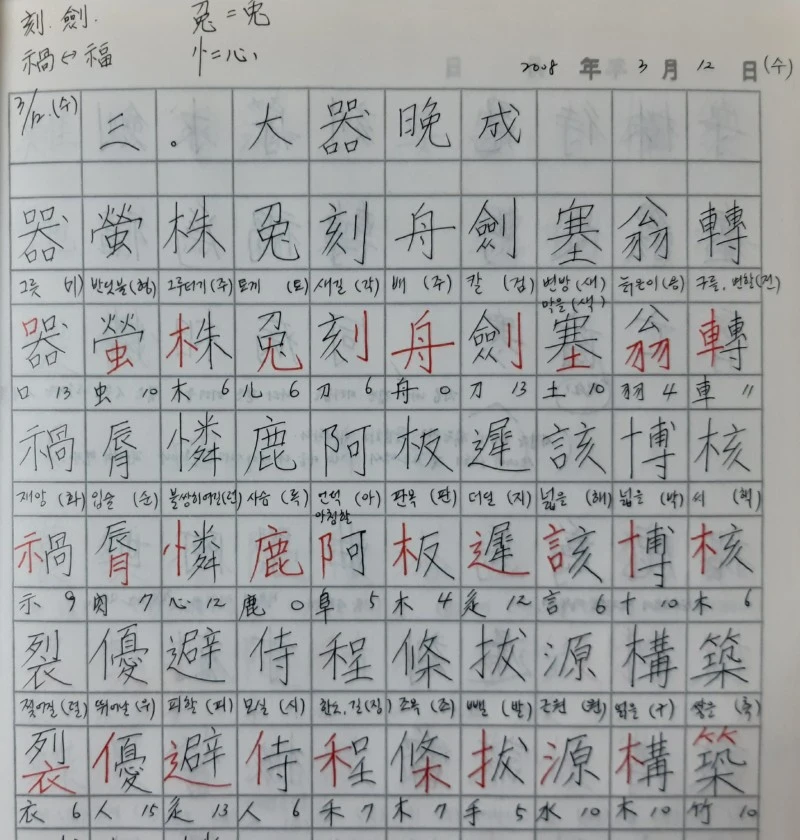 刻. 劍. 兎 = 兔
禍 ↔ 福 忄=心
2008 年 3 月 12 日 (수)
3/12.(수) 三. 大器晩成
器 螢 株 兔 刻 舟 劍 塞 翁 轉
그릇 (기) 반딧불(형) 그루터기(주) 토끼 (토) 새길 (각) 배 (주) 칼 (검) 변방 (새) 늙은이(옹) 구를, 변할(전)
막을 (색)
器 螢 株 兔 刻 舟 劍 塞 翁 轉
口 13 虫 10 木 6 儿 6 刀 6 舟 0 刀 13 土 10 羽 4 車 11
禍 脣 憐 鹿 阿 板 遲 該 博 核
재앙 (화) 입술 (순) 불쌍히여길(련) 사슴 (록) 언덕 (아) 판목 (판) 더딜 (지) 넓을 (해) 넓을 (박) 씨 (핵)
아첨할
禍 脣 憐 鹿 阿 板 遲 該 博 核
示 9 肉 7 心 12 鹿 0 阜 5 木 4 辵 12 言 6 十 10 木 6
裂 優 避 侍 程 條 拔 源 構 築
찢어질(렬) 뛰어날 (우) 피할 (피) 모실 (시) 한도, 길(정) 조목 (조) 뺄 (발) 근원 (원) 얽을 (구) 쌓을 (축)
裂 優 避 侍 程 條 拔 源 構 築
衣 6 人 15 辵 13 人 6 禾 7 木 7 手 5 水 10 木 10 竹 10